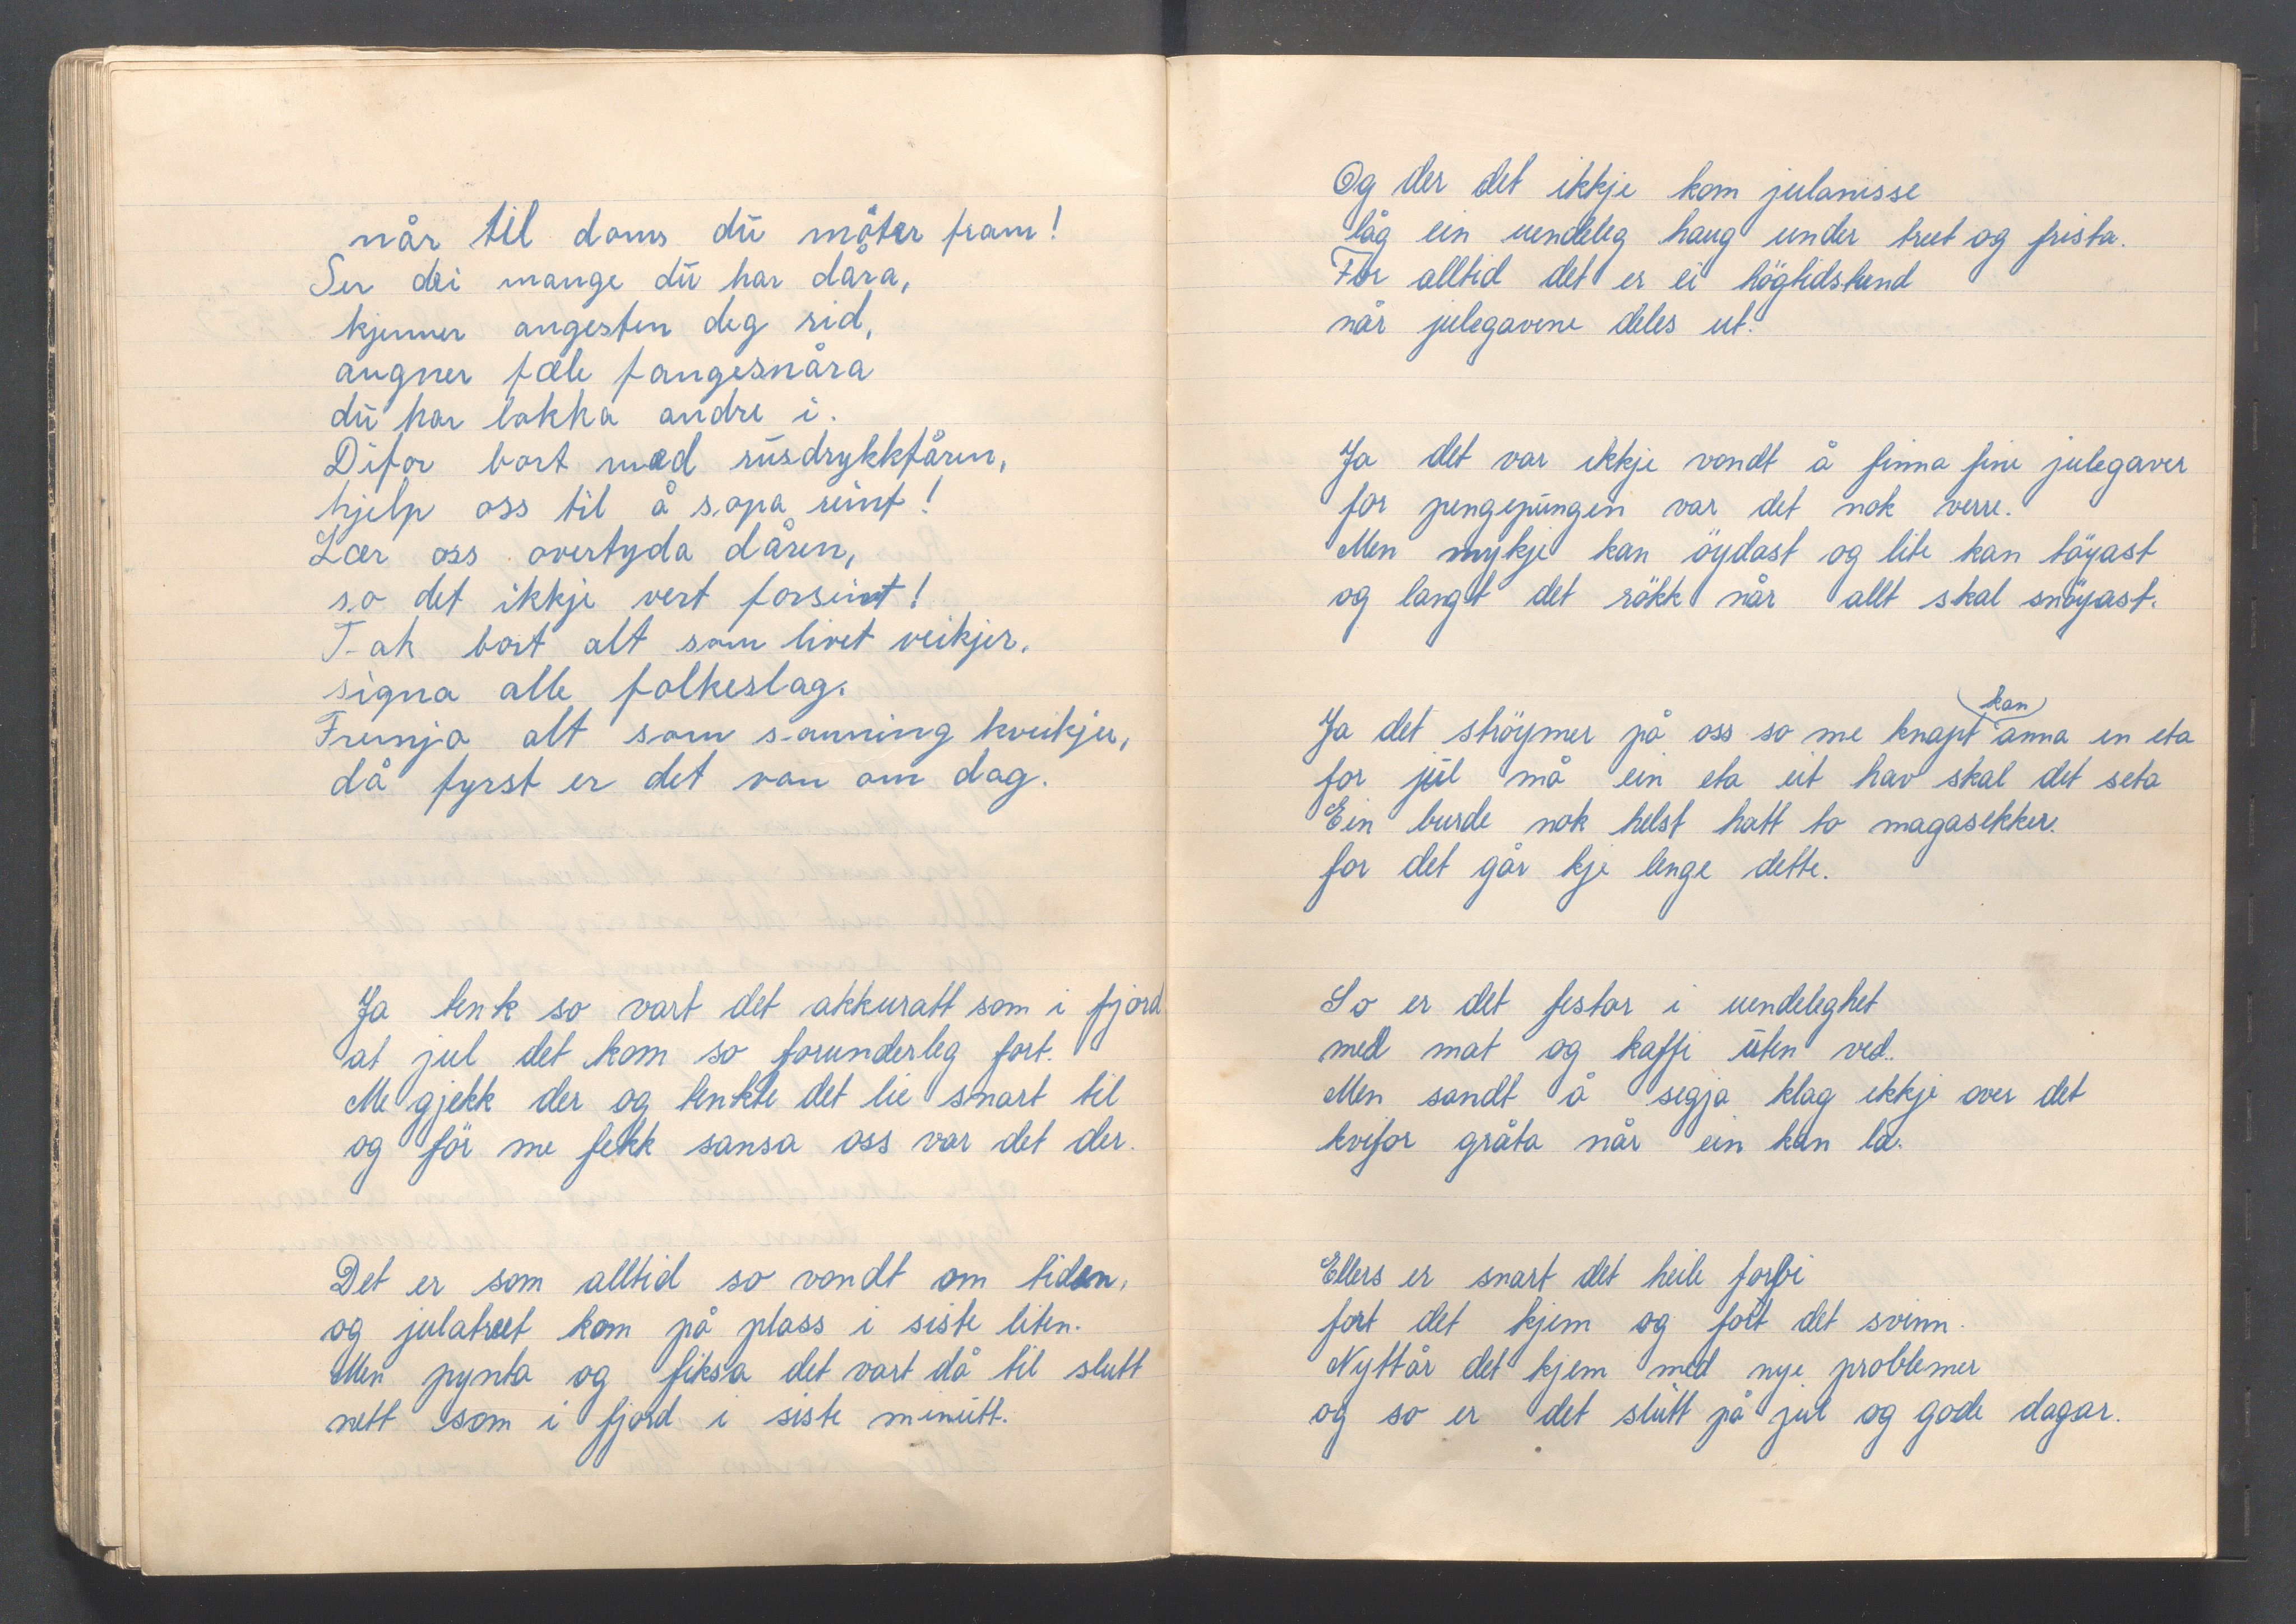 når til doms du möter fram!
Ser dei mange du har dåra,
kjenner angesten deg rid,
augner fæle fangesnåra
du har lokka andre i.
Difor bort med rusdrykkfåren,
hjelp oss til å sopa reint!
Lær oss overtyda dåren,
so det ikkje vert forseint!
Tak bort alt som livet veikjer,
signa alle folkeslag.
Fremja alt som sanning kveikjer,
då fyrst er det van om dag.
Ja tenk so vart det akkuratt som i fjord
at jul det kom so forunderleg fort.
Me gjekk der og tenkte det lie snart til
og för me fekk sansa oss var det der.
Det er som alltid so vondt om tiden,
og julatreet kom på plass i siste liten.
Men pynta og fiksa det vart då til slutt
nett som i fjord i siste minutt.
Og der det ikkje kom julanisse
låg ein uendeleg haug under treet og frista.
For alltid det er ei högtidstund
når julegavene deles ut.
Ja det var ikkje vondt å finna fine julegaver
for pengepungen var det nok verre.
Men mykje kan öydast og lite kan töyast
og langt det rökk når allt skal snöyast.
Ja det ströymer på oss so me knapt (kan) anna en eta
for jul må ein eta eit hav skal det seta
Ein burde nok helst hatt to magasekker.
for det går kje lenge dette.
So er det festar i uendeleghet
med mat og kaffi uten ved.
Men sandt å segja klag ikkje over det
kvifor gråta når ein kan le.
Ellers er snart det heile forbi
fort det kjem og fort det svinn.
Nyttår det kjem med nye problemer
og so er det slutt på jul og gode dagar.